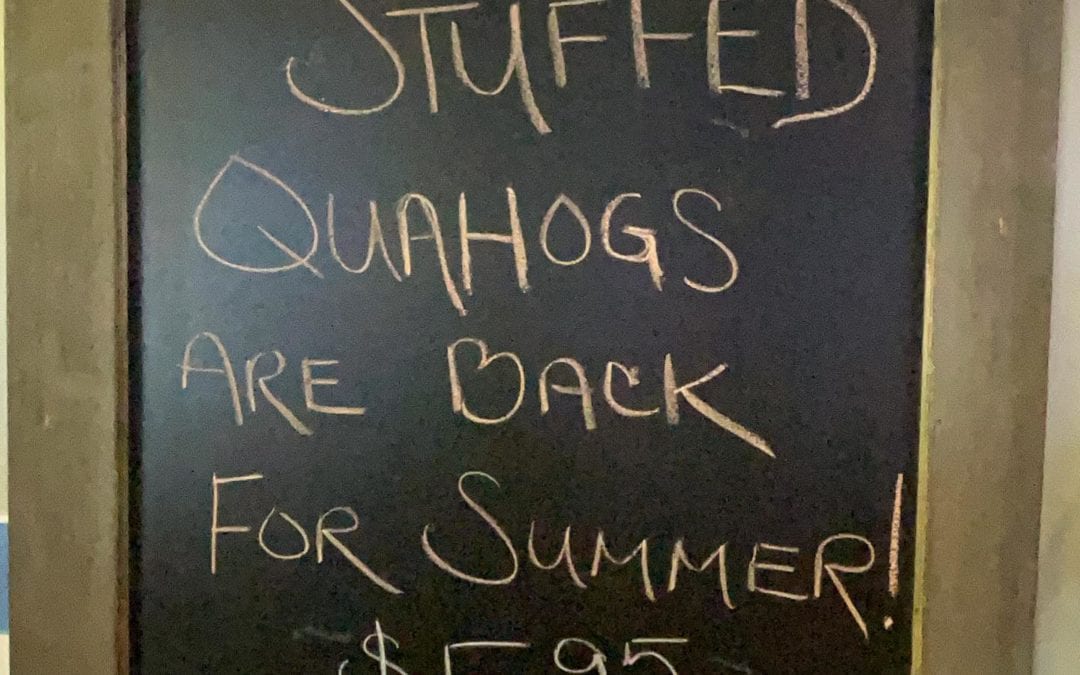 STUFFED
QUAHOGS
ARE BACK
FOR SUMMER!
$5.95